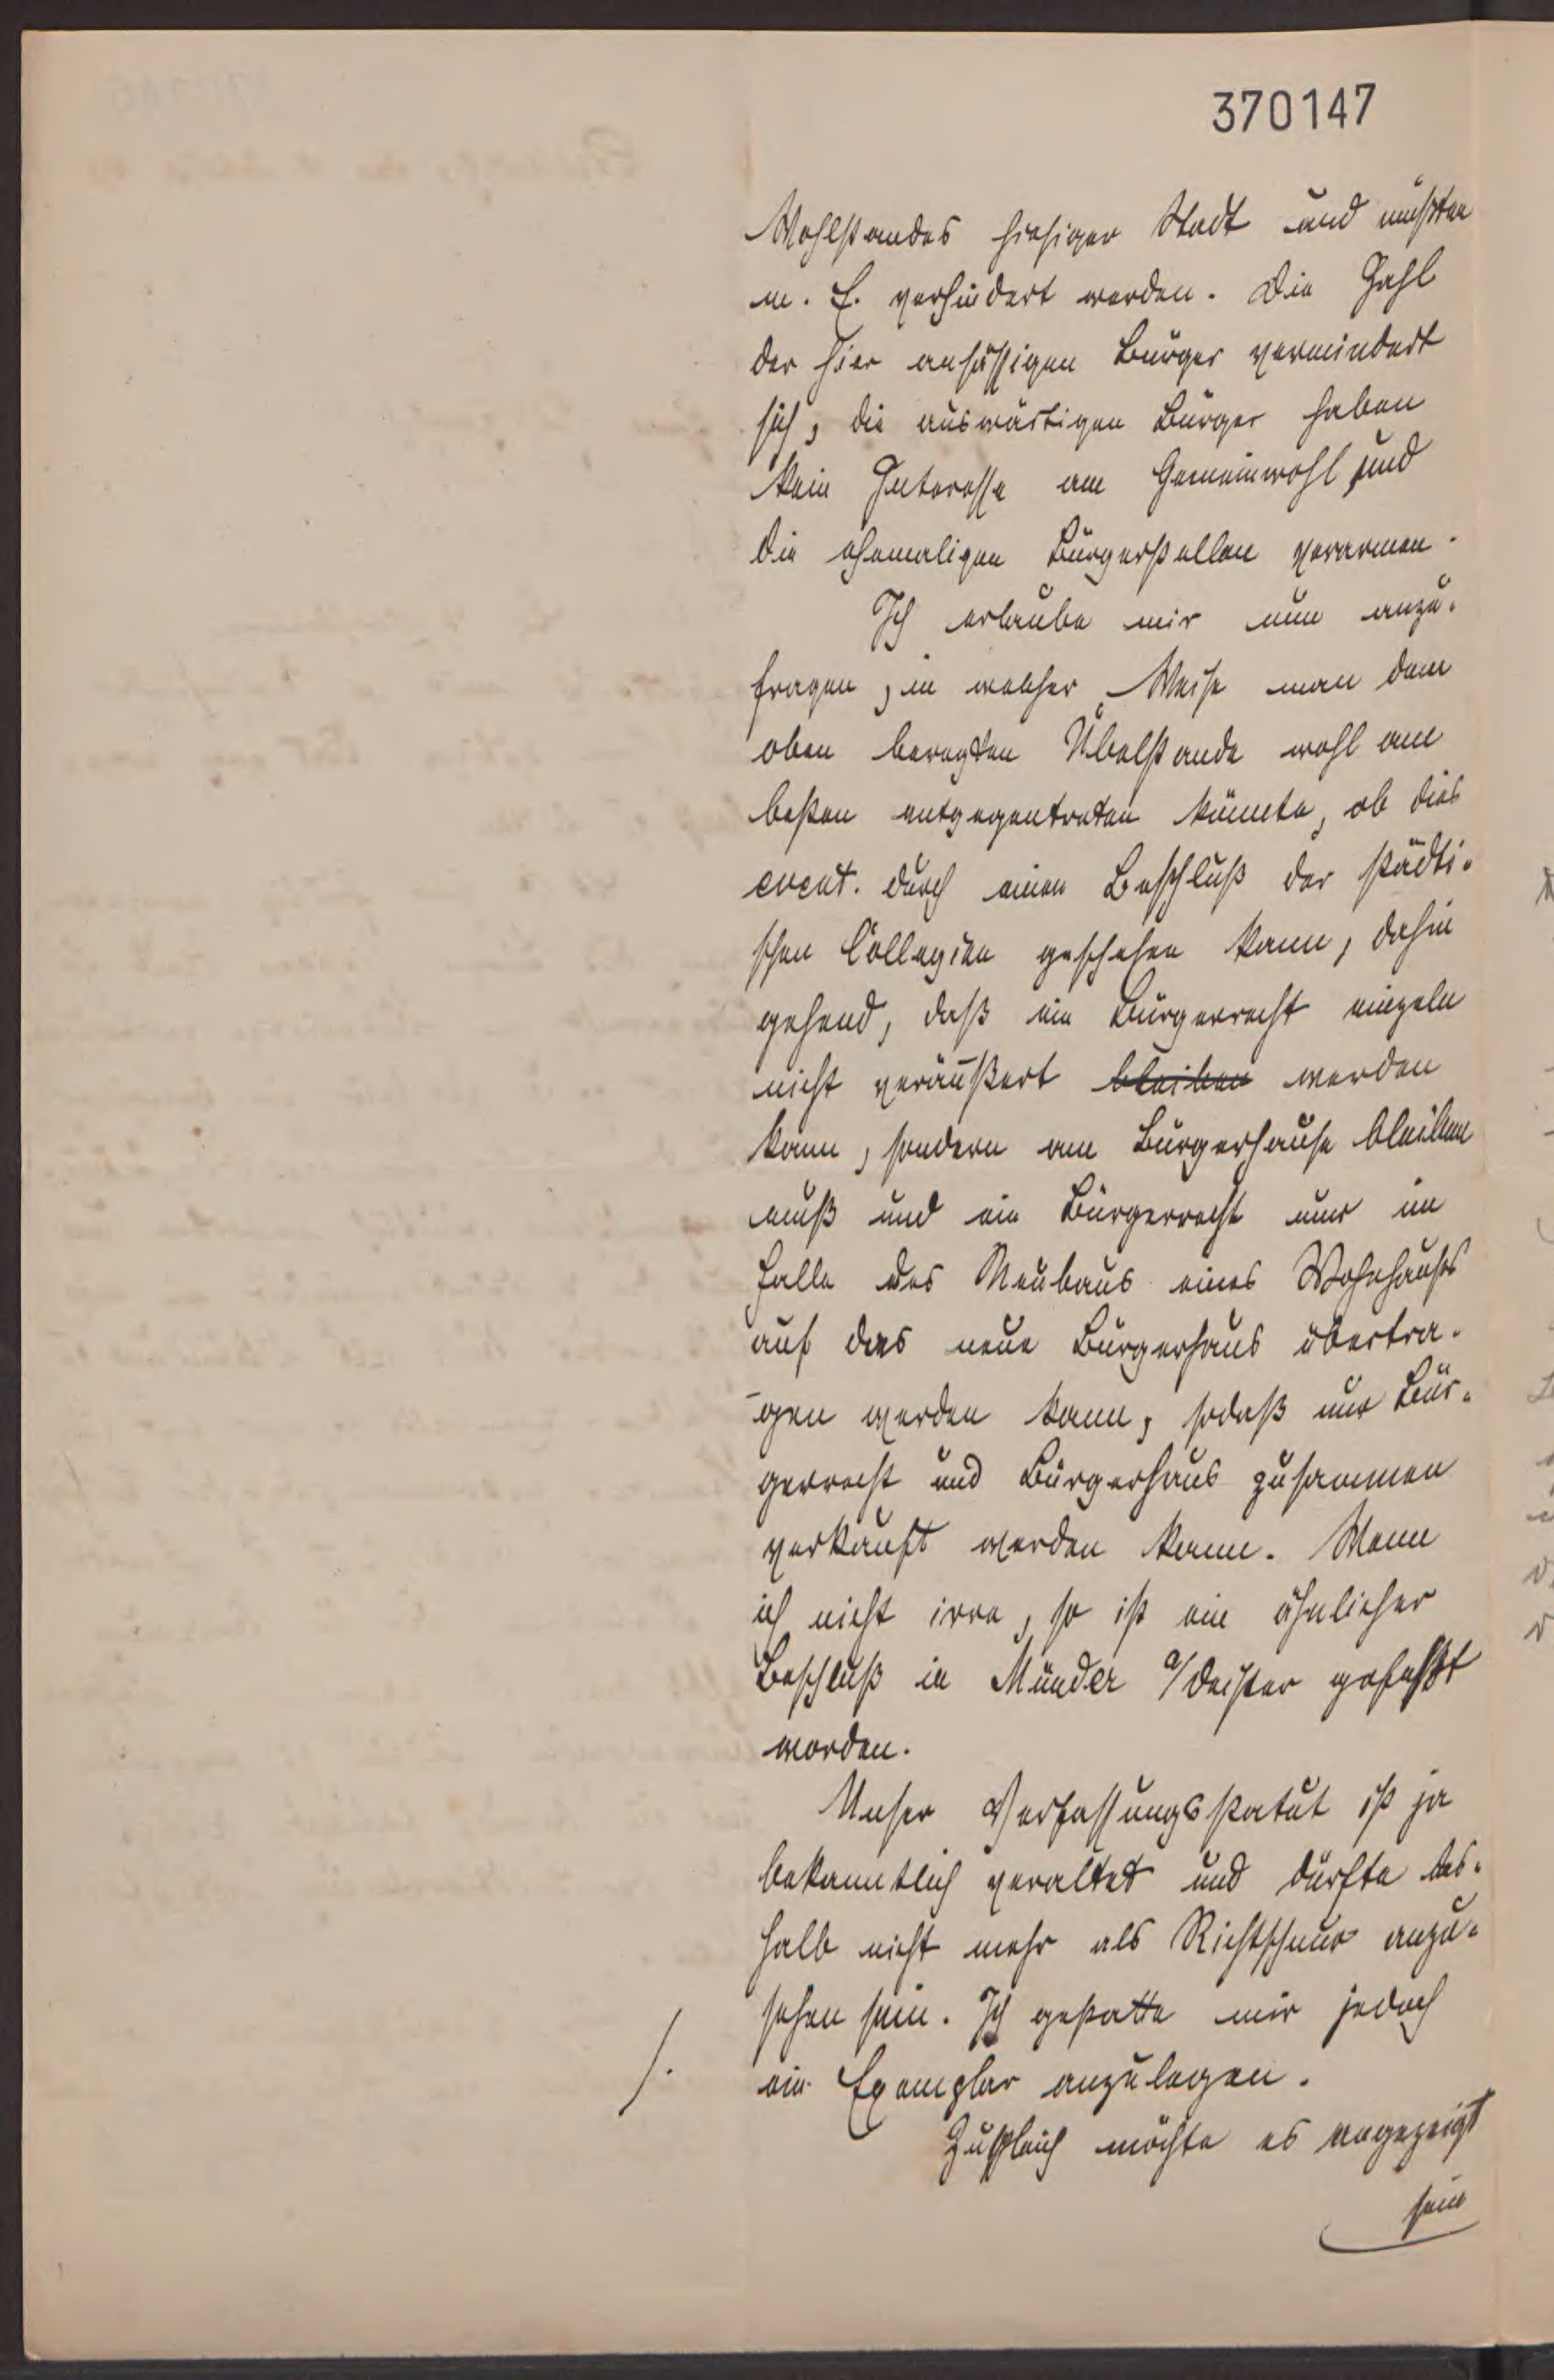 370147
Wohlstandes hiesiger Stadt und müßten
m. E. verhindert werden. Die Zahl
der hier ansässigen Bürger vermindert
sich, die auswärtigen Bürger haben
kein Interesse am Gemeinwohl und
die ehemaligen Bürgerstellen verarmen.
Ich erlaube mir nun anzu-
fragen, in welcher Weise man dem
oben beregten Übelstande wohl am
besten entgegentreten könnte, ob dies
event. durch einen Beschluß der städti-
schen Collegien geschehen kann, dahin
gehend, daß ein Bürgerrecht einzeln
nicht veräußert bleiben werden
kann, sondern am Bürgerhause bleiben
muß und ein Bürgerrecht nur im
Falle des Neubaus eines Wohnhauses
auf das neue Bürgerhaus übertra-
gen werden kann, sodaß nur Bür-
gerrecht und Bürgerhaus zusammen
verkauft werden kann. Wenn
ich nicht irre, so ist ein ähnlicher
Beschluß in Münder a/Deister gefaßt
worden.
Unser Verfassungsstatut ist ja
bekanntlich veraltet und dürfte des-
halb nicht mehr als Richtschnur anzu-
sehen sein. Ich gestatte mir jedoch
/. ein Exemplar anzulegen.
Zugleich möchte es angezeigt
sein